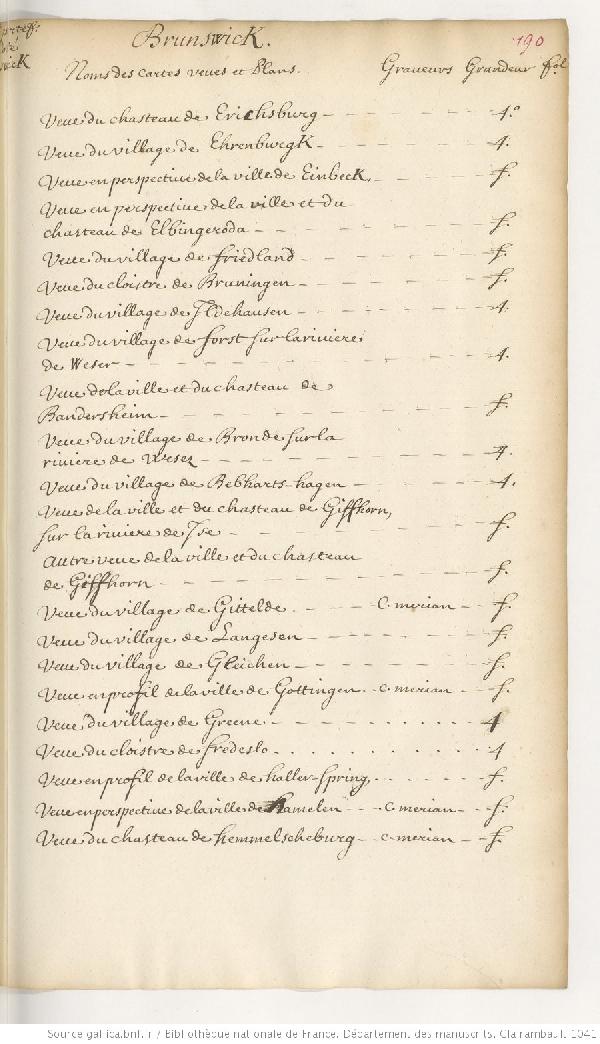 Brunswick.
190
Noms des cartes veues et Plans. Graveurs Grandeur fol
Veue du chasteau de Erichsburg - - - - - 4.º
Veue du village de Ehrenburgk - - - - - 4.
Veue en perspective de la ville de Einbeck. - - - - f.
Veue en perspective de la ville et du
chasteau de Elbingeroda - - - - - - - f.
Veue du village de friedland - - - - - - f.
Veue du cloistre de Bruningen - - - - - - f.
Veue du village de Ildehausen - - - - - - 4.
Veue du village de forst sur la riviere
de Weser - - - - - - - - - - 4.
Veue de la ville et du chasteau de
Bandersheim - - - - - - - - - f.
Veue du village de Bronde sur la
riviere de Wesez - - - - - - - - 4.
Veue du village de Bebharts-hagen - - - - 4.
Veue de la ville et du chasteau de Giffhorn,
sur la riviere de Ise - - - - - - - f.
Autre veue de la ville et du chasteau
de Giffhorn - - - - - - - - - f.
Veue du village de Gittelde - - - - - C. merian - - f.
Veue du village de Langesen - - - - - - f.
Veue du village de Gleichen - - - - - - f.
Veue en profil de la ville de Gottingen - - c. merian - - f.
Veue du village de Greene - - - - - - - 4
Veue du cloistre de fredeslo . . . . . . . . . 4
Veue en profil de la ville de haller-spring, . . . . . . f.
Veue en perspective de la ville de hamelen - - - C. merian - - f.
Veue du chasteau de hemmelscheburg - - c. merian - - f.
Source gallica.bnf.fr / Bibliothèque nationale de France. Département des manuscrits. Clairambault 1041